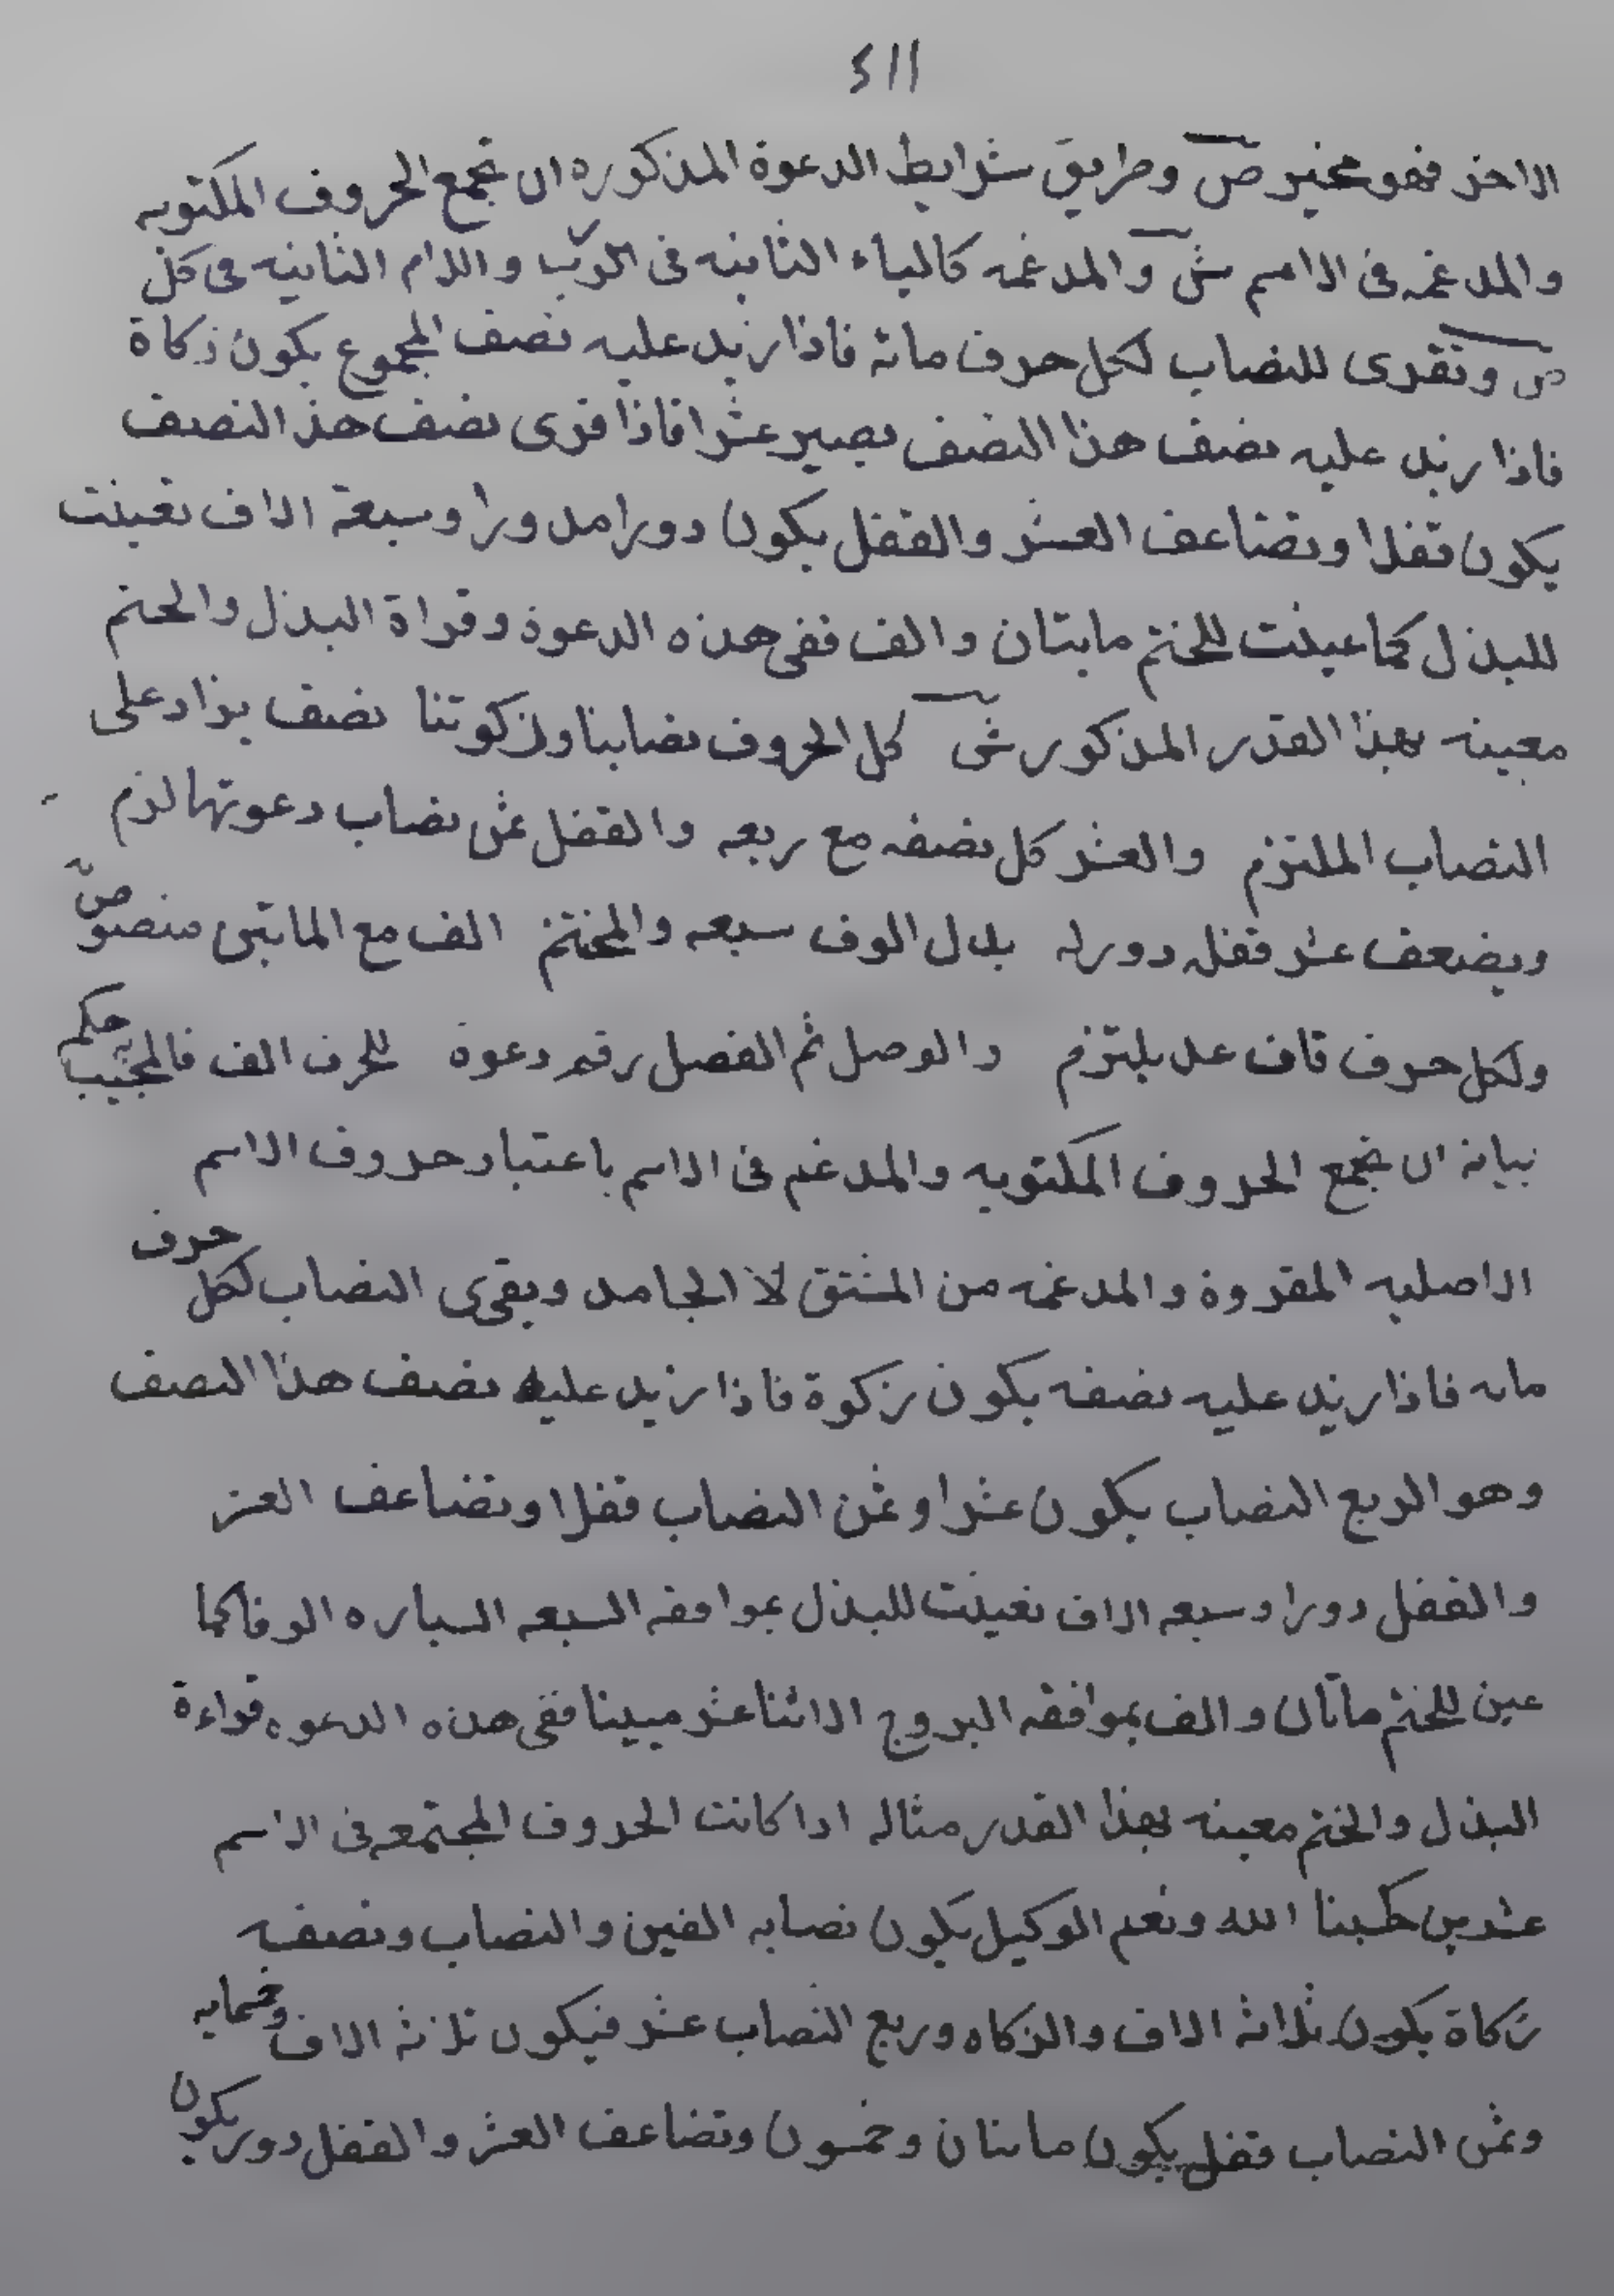 ٤١١
الاخر فهو مخير ص وطريق شرايط الدعوة المذكوره ان تجمع الحروف المكتوبه
والمدغمه فى الاسم ش والمدغمه كالباء الثانيه فى الربّ واللام الثانيه فى كلّ
ص وتقرى للنصاب لكل حرف مائة فاذا زيد عليه نصف المجموع يكون زكاة
فاذا زيد عليه نصف هذا النصف يصير عشرا فاذا قرى نصف هذ النصف
يكون قفلا وتضاعف العشر والقفل يكون دورا مدورا وسبعة الاف تعينت
للبذل كما عينت للختم مايتان والف ففى هذه الدعوة وقراة البذل والختم
معينه بهذا القدر المذكور ش كل الحروف نصابنا وزكوتنا نصف يزاد على
النصاب الملتزم والعشر كل نصفه مع ربعه والقفل ثمن نصاب دعوتها لزم
ويضعف عشر قفله دور له بدل الوف سبعه والمختتم الف مع الماتين منصوصّ
ولكل حرف قاف عد يلتزم والوصل ثم الفصل رقم دعوة للحرف الف فالمجيب حكم
بيانه ان تجمع الحروف المكتوبه والمدغم فى الاسم باعتبار حروف الاسم
الاصليه المقروة والمدغمه من المشتق لا الجامد ويقرى النصاب لكل حرف
مايه فاذا زيد عليه نصفه يكون زكوة فاذا زيد عليه نصف هذا النصف
وهو الربع النصاب يكون عشرا وثمن النصاب قفلا وتضاعف العشر
والقفل دورا وسبعه الاف تعينت للبذل بموافقه السبعه السياره الوفا كما
عين للختم ماتان والف بموافقه البروج الاثنا عشر مبينا ففى هذه الدعوه قراءة
البذل والختم معينه بهذا القدر مثاله اذا كانت الحروف المجتمعه فى الاسم
عشرين كحسبنا الله ونعم الوكيل يكون نصابه الفين والنصاب ونصفه
زكاة يكون ثلاثة الاف والزكاه وربع النصاب عشر فيكون ثلاثة الاف وخمسمايه
وثمن النصاب قفل يكون مائتان وخمسون وتضاعف العشر والقفل دور يكون